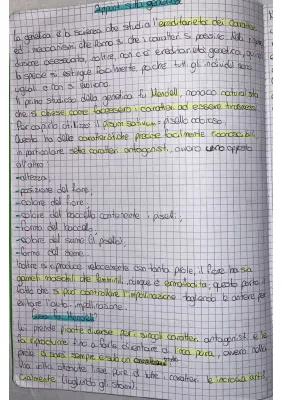 Appunti sulla genetica
La genetica è la scienza che studia l'ereditarietà dei caratteri
ed i meccanismi che fanno sì che i caratteri si possano
inoltre, non c'è ereditarietà genetica,
la specie si estingue facilmente, poiché tutti gli individui sono
uguali e non si
Il primo studioso della genetica fu Mendell, monaco naturalista
che si chiese come facessero i caratteri ad essere trasmessi
Per capirlo utilizzò il pisum sativum = pisello odoroso.
Questo ha delle caratteristiche precise facilmente riconoscibili,
in particolare sette caratteri antagonisti, ovvero uno opposto
all'altro:
-altezza;
-posizione del fiore;
-colore del fiore;
-colore del baccello contenente i piselli;
-forma del baccello;
-colore del seme (il pisello);
-forma del seme.
Inoltre si riproduce velocemente con tanta prole, il fiore ha sia
apparati maschili che femminili, dunque è ermafrodita; questo porta il
fatto che si può controllare l'impollinazione tagliando le antere per
evitare l'auto-impollinazione.
Mendell?
Lui prende piante diverse per i singoli caratteri antagonisti e le
fa riprodurre fino a farle diventare di linea pura, ovvero dalla
prole di darsi sempre e solo un
Una volta ottenute linee pure di tutti i caratteri le incrocia artifi-
cialmente (tagliando gli stami).